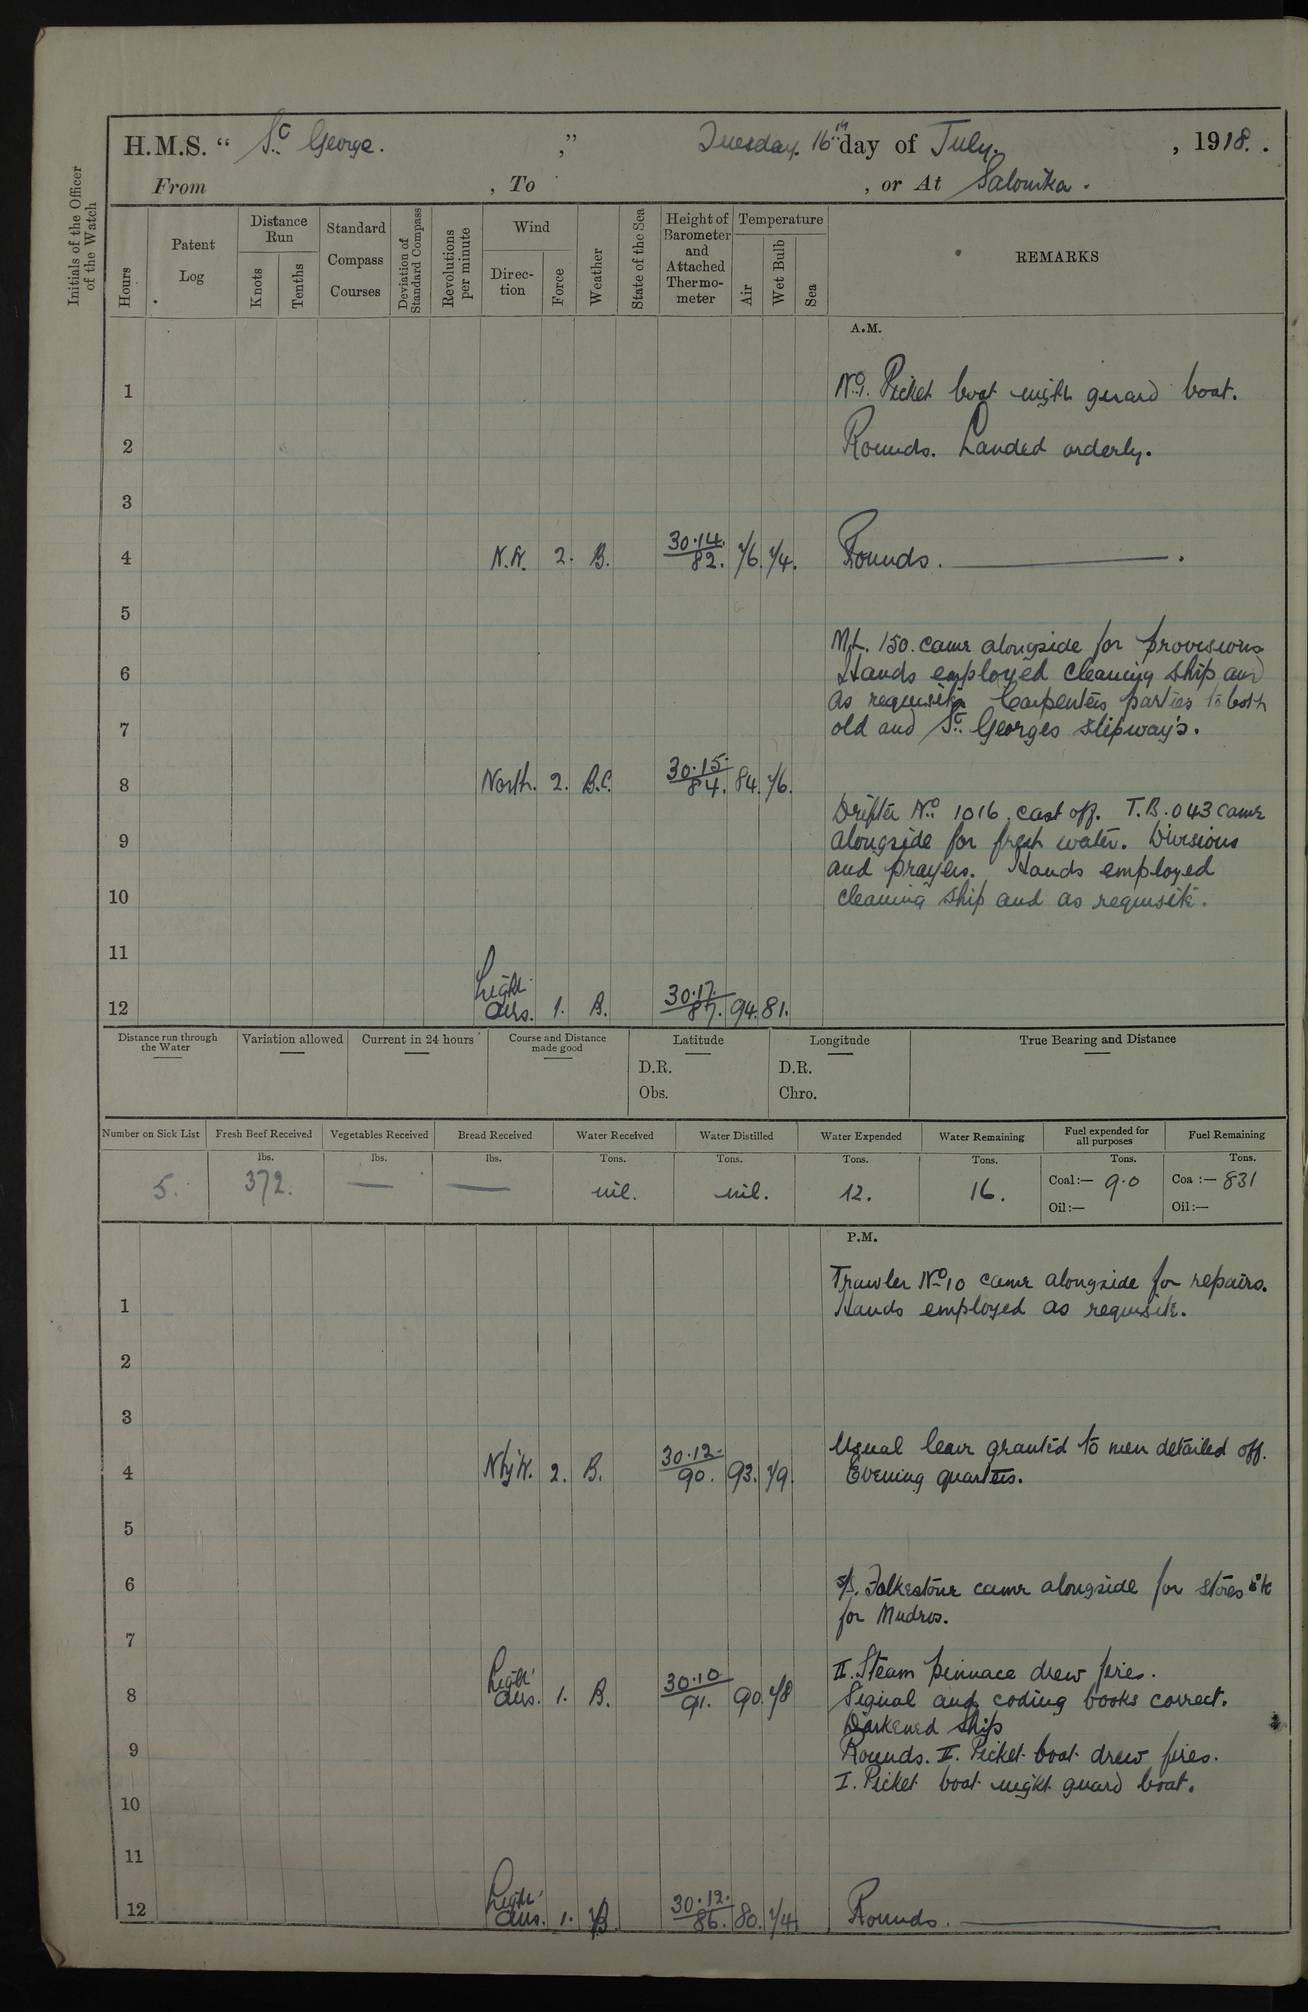 H.M.S. “ St George. ,” Tuesday. 16th day of July. , 1918. .
From , To , or At Salonika.
Initials of the Officer of the Watch
Hours
Patent Log
Distance Run
Knots
Tenths
Standard Compass Courses
Deviation of Standard Compass
Revolutions per minute
Wind
Direc-tion
Force
Weather
State of the Sea
Height of Barometer and Attached Thermo-meter
Temperature
Air
Wet Bulb
Sea
REMARKS
A.M.
1 No 1. Picket boat night guard boat.
2 Rounds. Landed orderly.
3
4 N.W. 2. B. 30.14. 82. 76. 74. Rounds.
5
M.L. 150. came alongside for provisions
6 Hands employed cleaning ship and
as requisite Carpenters parties to both
7 old and St. Georges slipway's.
8 North. 2. B.C. 30.15. 84. 84. 76.
Drifter No 1016, cast off. T.B. 043 came
9 alongside for fresh water. Divisions
and prayers. Hands employed
10 cleaning ship and as requisite.
11
12 Light airs. 1. B. 30.17. 87. 94. 81.
Distance run through the Water
Variation allowed
Current in 24 hours
Course and Distance made good
Latitude
D.R.
Obs.
Longitude
D.R.
Chro.
True Bearing and Distance
Number on Sick List
5.
Fresh Beef Received
lbs.
372.
Vegetables Received
lbs.
—
Bread Received
lbs.
—
Water Received
Tons.
nil.
Water Distilled
Tons.
nil.
Water Expended
Tons.
12.
Water Remaining
Tons.
16.
Fuel expended for all purposes
Tons.
Coal:— 9.0
Oil:—
Fuel Remaining
Tons.
Coa :— 831
Oil:—
P.M.
Trawler No 10 came alongside for repairs.
1 Hands employed as requisite.
2
3
Usual leave granted to men detailed off.
4 N by W. 2. B. 30.12. 90. 93. 79. Evening quarters.
5
6 s/s. Folkestone came alongside for stores etc
for Mudros.
7
II. Steam pinnace drew fires.
8 Light airs. 1. B. 30.10 91. 90. 78 Signal and coding books correct.
Darkened ship
9 Rounds. II. Picket boat drew fires.
I. Picket boat night guard boat.
10
11
12 Light airs. 1. B. 30.12. 86. 80. 74. Rounds.